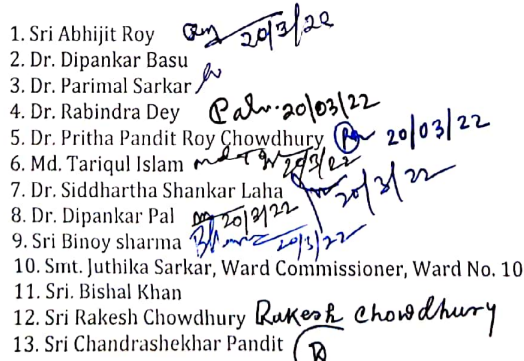 1. Sri Abhijit Roy 20/3/22
2. Dr. Dipankar Basu
3. Dr. Parimal Sarkar
4. Dr. Rabindra Dey 20/03/22
5. Dr. Pritha Pandit Roy Chowdhury 20/03/22
6. Md. Tariqul Islam 20/3/22
7. Dr. Siddhartha Shankar Laha 20/3/22
8. Dr. Dipankar Pal 20/3/22
9. Sri Binoy sharma 20/3/22
10. Smt. Juthika Sarkar, Ward Commissioner, Ward No. 10
11. Sri. Bishal Khan
12. Sri Rakesh Chowdhury Rakesh Chowdhury
13. Sri Chandrashekhar Pandit